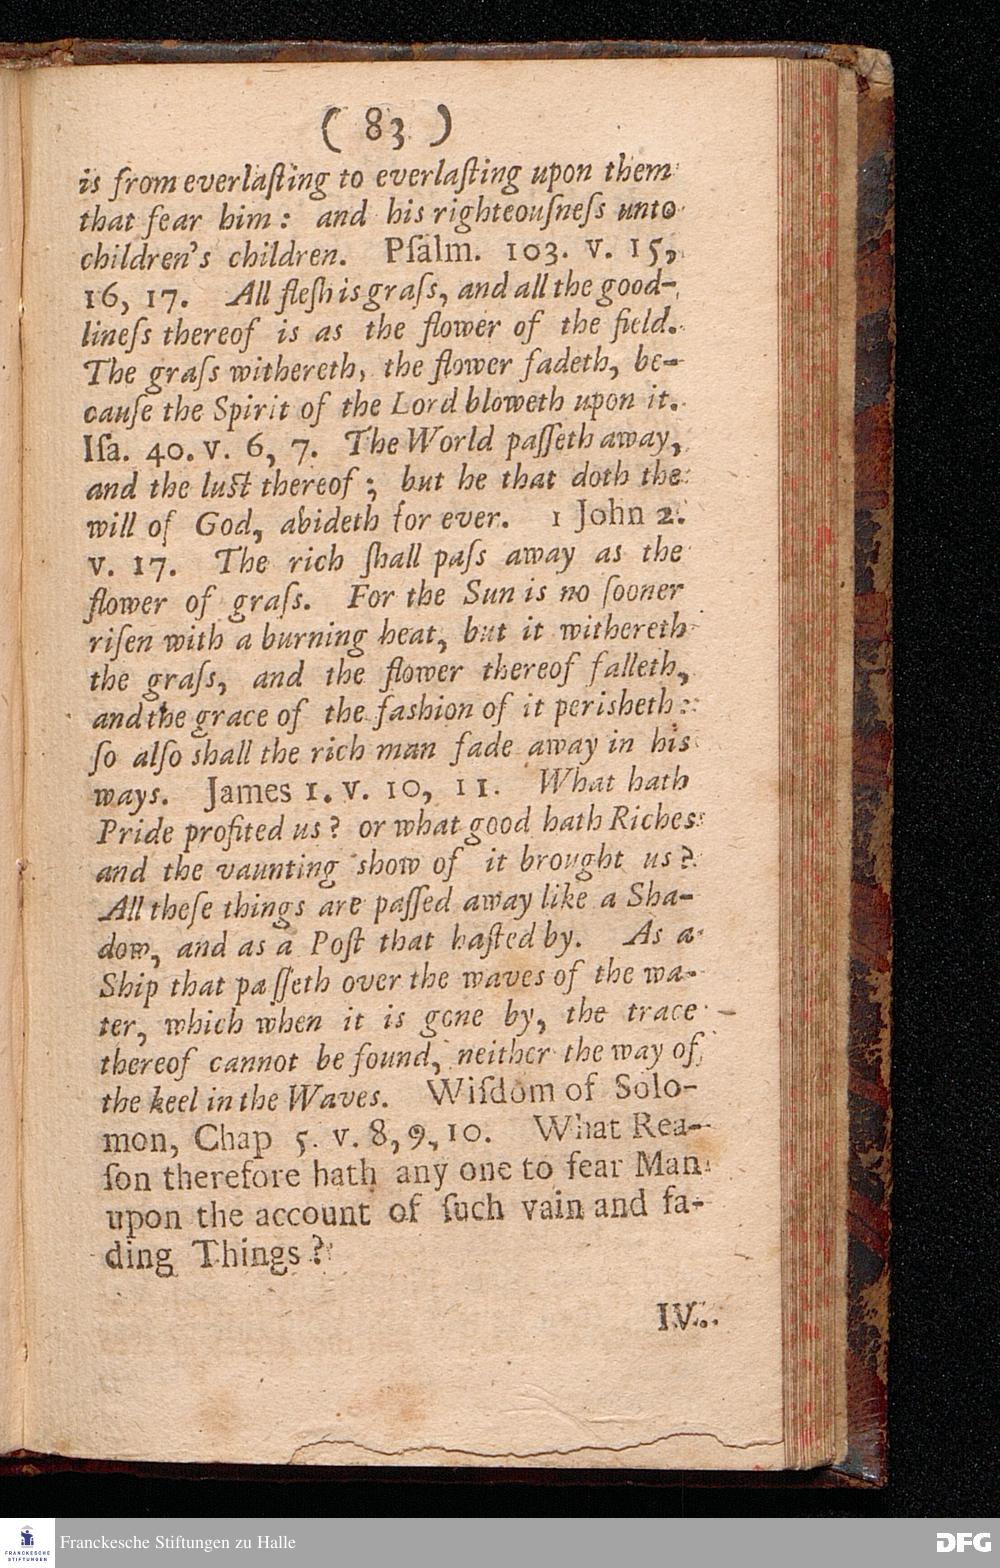 ( 83 )
is from everlaſting to everlaſting upon them
that fear him: and his righteouſneſs unto
children's children. Pſalm. 103. v. 15,
16, 17. All fleſh is graſs, and all the good-
lineſs thereof is as the flower of the field.
The graſs withereth, the flower fadeth, be-
cauſe the Spirit of the Lord bloweth upon it.
Iſa. 40. v. 6, 7. The World paſſeth away,
and the luſt thereof; but he that doth the
will of God, abideth for ever. 1 John 2.
v. 17. The rich ſhall paſs away as the
flower of graſs. For the Sun is no ſooner
riſen with a burning heat, but it withereth
the graſs, and the flower thereof falleth,
and the grace of the faſhion of it perisheth:
ſo alſo shall the rich man fade away in his
ways. James 1. v. 10, 11. What hath
Pride profited us? or what good hath Riches
and the vaunting show of it brought us?
All theſe things are paſſed away like a Sha-
dow, and as a Poſt that haſted by. As a
Ship that paſſeth over the waves of the wa-
ter, which when it is gone by, the trace
thereof cannot be found, neither the way of
the keel in the Waves. Wiſdom of Solo-
mon, Chap 5. v. 8, 9, 10. What Rea-
ſon therefore hath any one to fear Man
upon the account of ſuch vain and fa-
ding Things?
IV.
FRANCKESCHE
STIFTUNGEN
Franckesche Stiftungen zu Halle
DFG